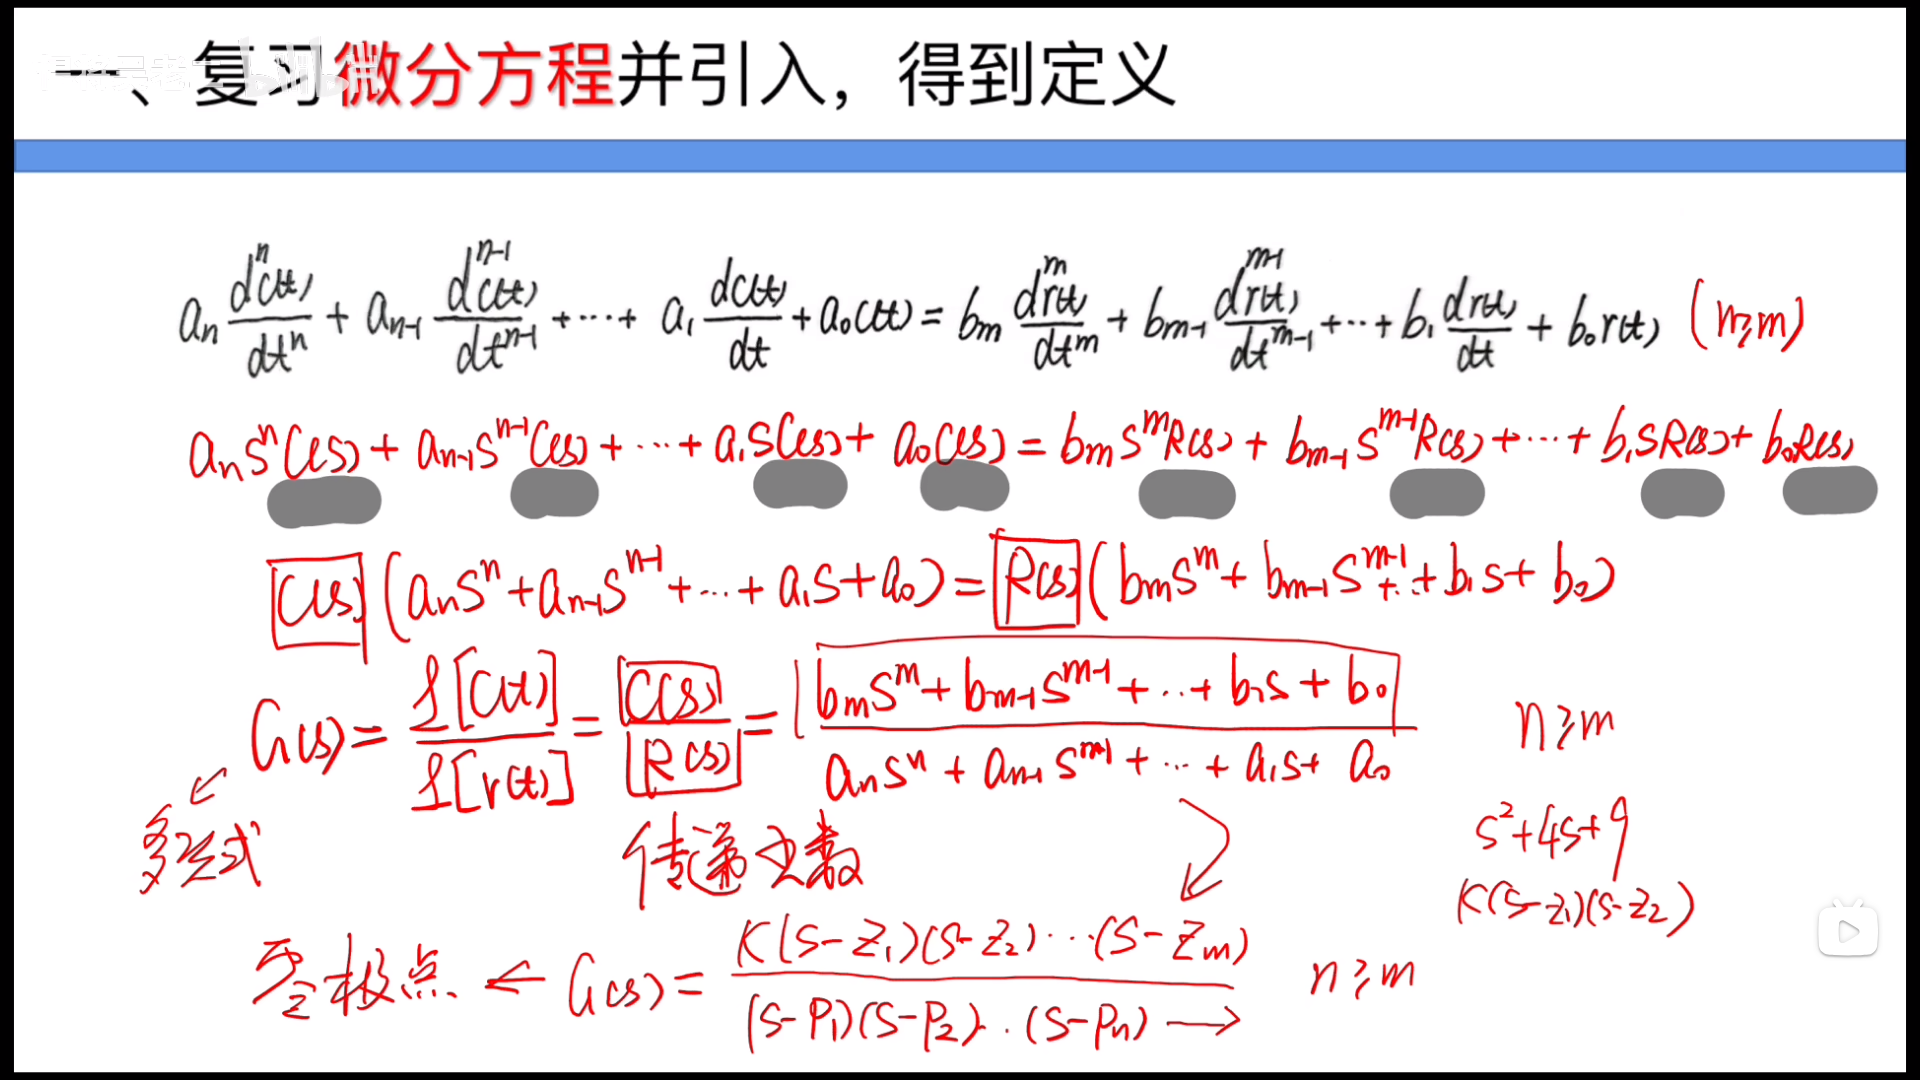 一、复习微分方程并引入，得到定义
aₙ dⁿc(t)/dtⁿ + aₙ₋₁ dⁿ⁻¹c(t)/dtⁿ⁻¹ + ··· + a₁ dc(t)/dt + a₀c(t) = bₘ dᵐr(t)/dtᵐ + bₘ₋₁ dᵐ⁻¹r(t)/dtᵐ⁻¹ + ··· + b₁ dr(t)/dt + b₀r(t) (n≥m)
aₙsⁿC(s) + aₙ₋₁sⁿ⁻¹C(s) + ··· + a₁sC(s) + a₀C(s) = bₘsᵐR(s) + bₘ₋₁sᵐ⁻¹R(s) + ··· + b₁sR(s) + b₀R(s)
C(s)(aₙsⁿ + aₙ₋₁sⁿ⁻¹ + ··· + a₁s + a₀) = R(s)(bₘsᵐ + bₘ₋₁sᵐ⁻¹ + ·· + b₁s + b₀)
G(s) = ℒ[c(t)]/ℒ[r(t)] = C(s)/R(s) = (bₘsᵐ + bₘ₋₁sᵐ⁻¹ + ··· + b₁s + b₀)/(aₙsⁿ + aₙ₋₁sᵐ⁻¹ + ··· + a₁s + a₀) n≥m
多项式
传递函数
s²+4s+9
K(s-z₁)(s-z₂)
零极点 ← G(s) = K(s-z₁)(s-z₂)···(s-zₘ)/(s-p₁)(s-p₂)··(s-pₙ) → n≥m